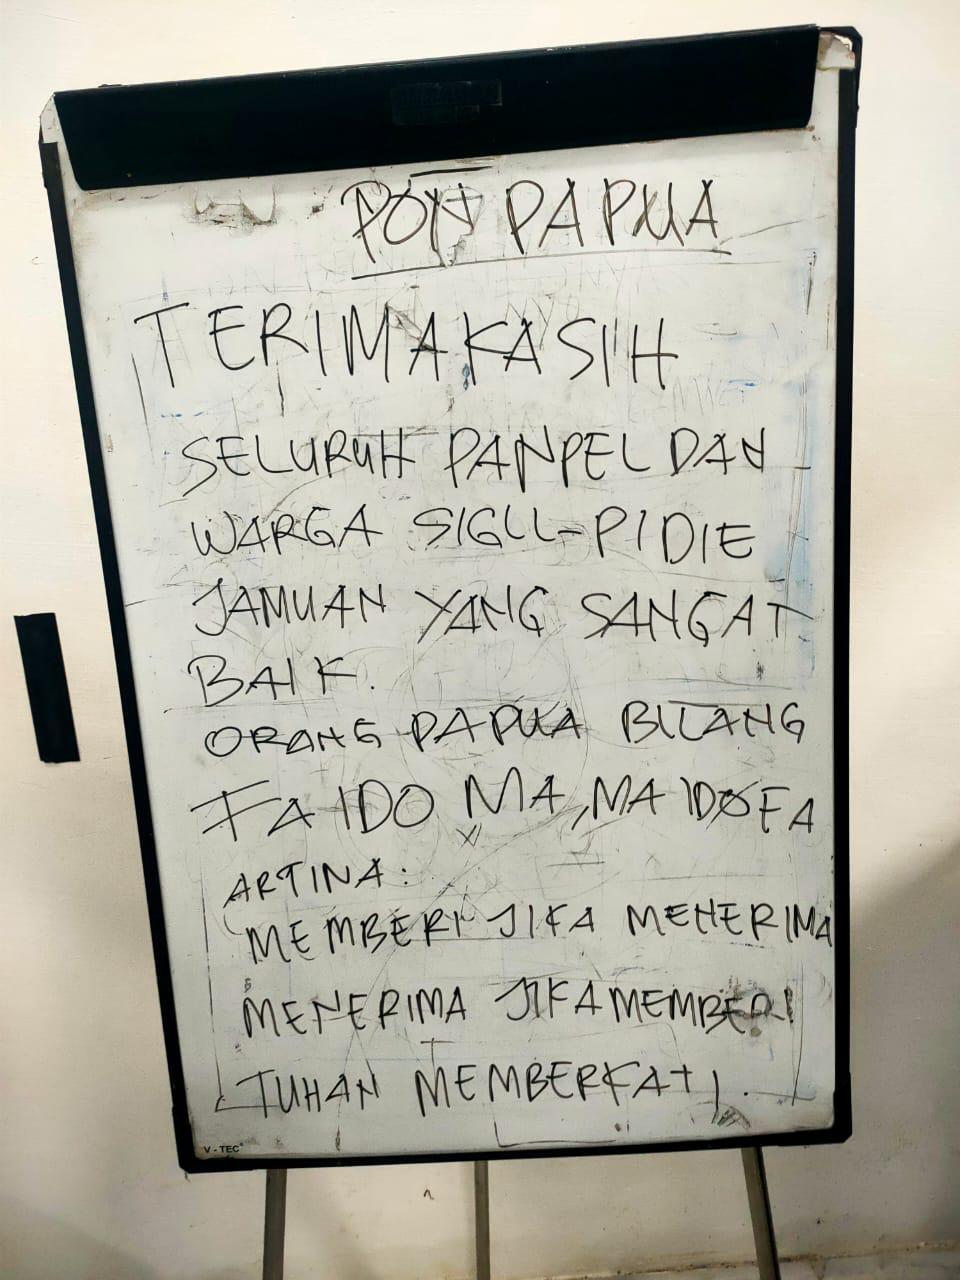 PON PAPUA
TERIMAKASIH
SELURUH PANPEL DAN
WARGA SIGLI-PIDIE
JAMUAN YANG SANGAT
BAIK.
ORANG PAPUA BILANG
FAIDO MA, MA IDO FA
ARTINA:
MEMBERI JIKA MENERIMA
MENERIMA JIKA MEMBERI
TUHAN MEMBERKATI.
V-TEC